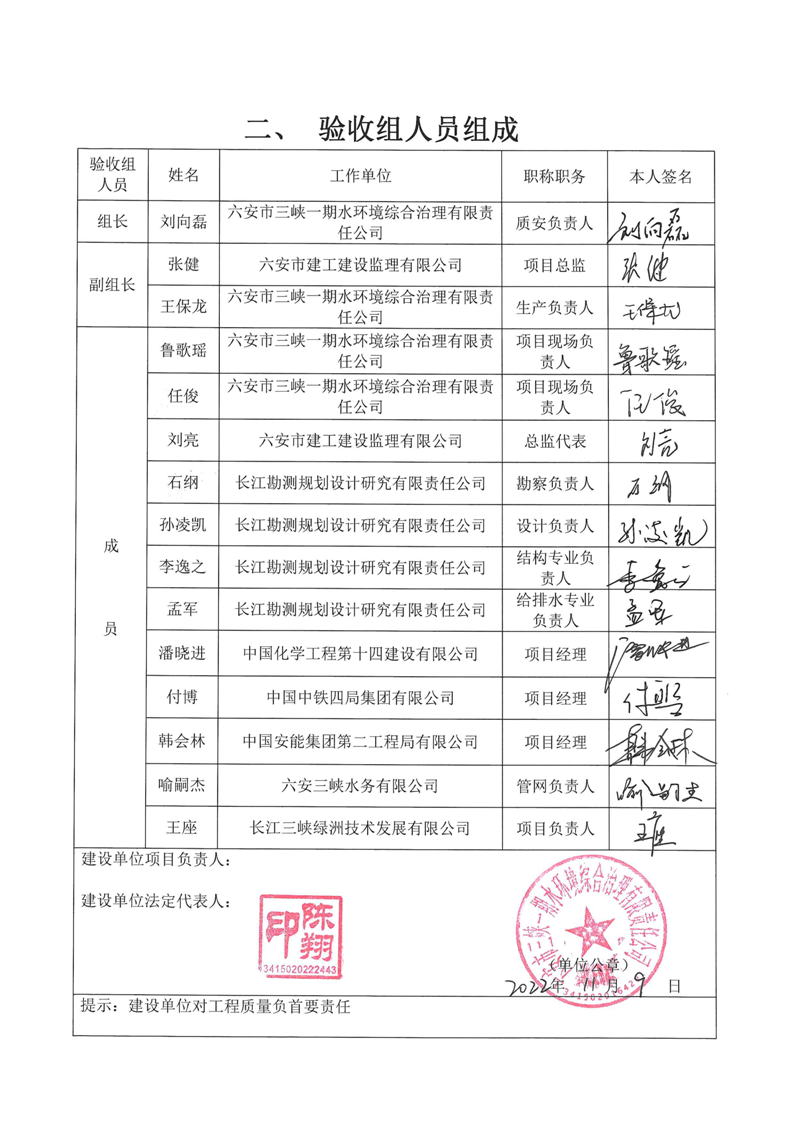 二、 验收组人员组成
验收组人员 姓名 工作单位 职称职务 本人签名
组长 刘向磊 六安市三峡一期水环境综合治理有限责任公司 质安负责人 刘向磊
副组长 张健 六安市建工建设监理有限公司 项目总监 张健
王保龙 六安市三峡一期水环境综合治理有限责任公司 生产负责人 王保龙
成员 鲁歌瑶 六安市三峡一期水环境综合治理有限责任公司 项目现场负责人 鲁歌瑶
任俊 六安市三峡一期水环境综合治理有限责任公司 项目现场负责人 任俊
刘亮 六安市建工建设监理有限公司 总监代表 刘亮
石纲 长江勘测规划设计研究有限责任公司 勘察负责人 石纲
孙凌凯 长江勘测规划设计研究有限责任公司 设计负责人 孙凌凯
李逸之 长江勘测规划设计研究有限责任公司 结构专业负责人 李逸之
孟军 长江勘测规划设计研究有限责任公司 给排水专业负责人 孟军
潘晓进 中国化学工程第十四建设有限公司 项目经理 潘晓进
付博 中国中铁四局集团有限公司 项目经理
韩会林 中国安能集团第二工程局有限公司 项目经理 韩会林
喻嗣杰 六安三峡水务有限公司 管网负责人 喻嗣杰
王座 长江三峡绿洲技术发展有限公司 项目负责人 王座
建设单位项目负责人：
建设单位法定代表人：
陈翔印
3415020222443
六安市三峡一期水环境综合治理有限责任公司
（单位公章）
2022年 11月 9 日
提示：建设单位对工程质量负首要责任